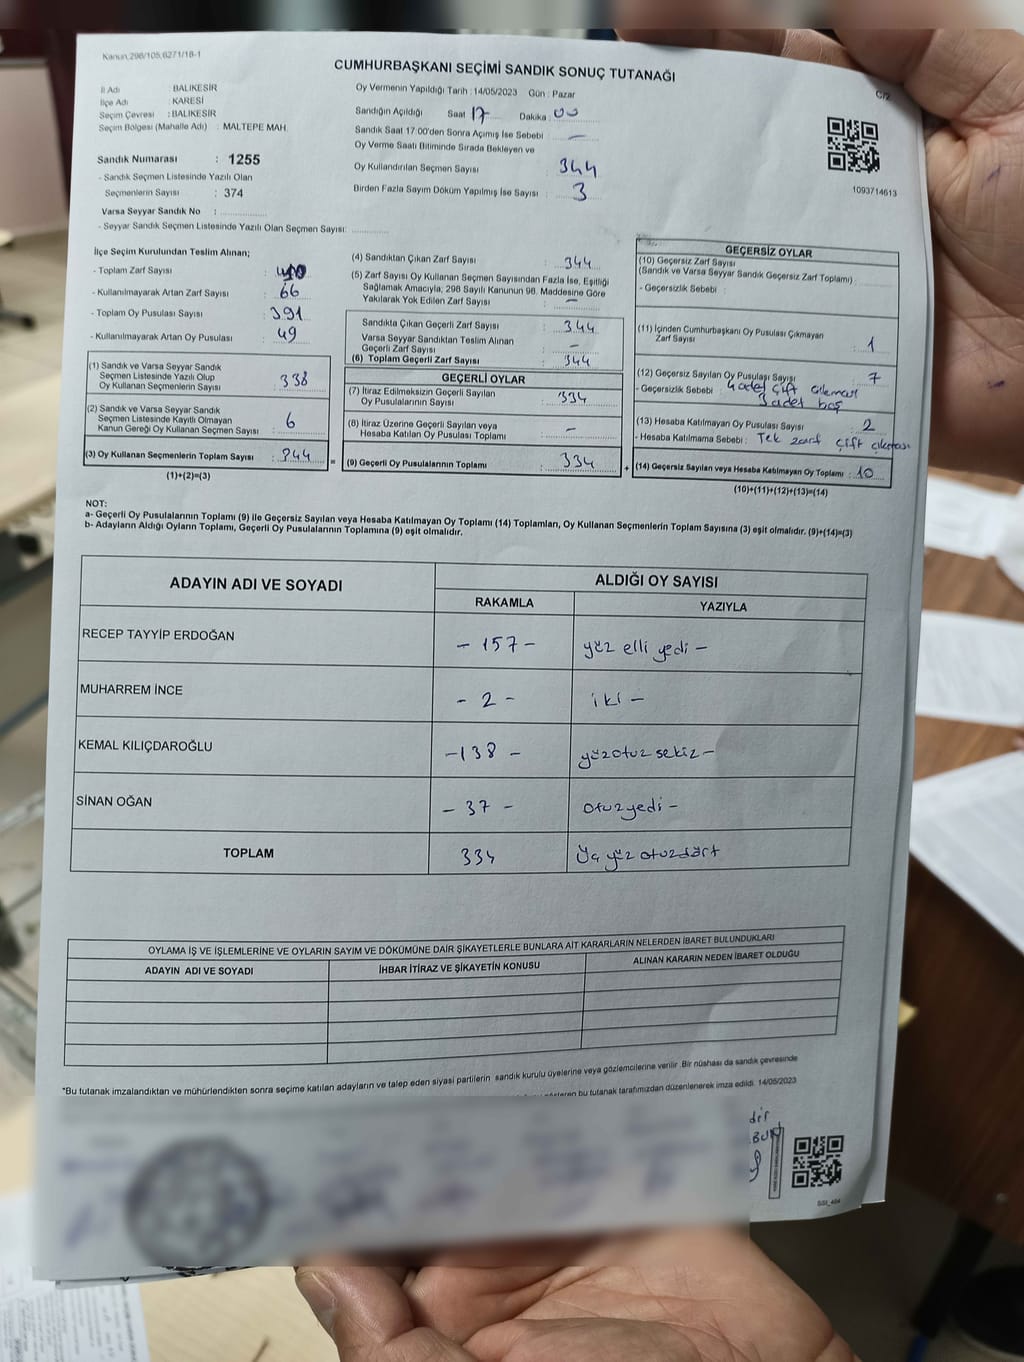 Kanun,298/105,6271/18-1
CUMHURBAŞKANI SEÇİMİ SANDIK SONUÇ TUTANAĞI
C/2
İl Adı : BALIKESİR
İlçe Adı : KARESİ
Seçim Çevresi : BALIKESİR
Seçim Bölgesi (Mahalle Adı) : MALTEPE MAH.
Sandık Numarası : 1255
- Sandık Seçmen Listesinde Yazılı Olan
Seçmenlerin Sayısı : 374
Varsa Seyyar Sandık No :
- Seyyar Sandık Seçmen Listesinde Yazılı Olan Seçmen Sayısı:
Oy Vermenin Yapıldığı Tarih : 14/05/2023 Gün : Pazar
Sandığın Açıldığı Saat 17 Dakika : 00
Sandık Saat 17:00'den Sonra Açılmış İse Sebebi : —
Oy Verme Saati Bitiminde Sırada Bekleyen ve
Oy Kullandırılan Seçmen Sayısı : 344
Birden Fazla Sayım Döküm Yapılmış İse Sayısı : 3
1093714613
İlçe Seçim Kurulundan Teslim Alınan;
- Toplam Zarf Sayısı :
- Kullanılmayarak Artan Zarf Sayısı : 66
- Toplam Oy Pusulası Sayısı : 391
- Kullanılmayarak Artan Oy Pusulası : 49
(1) Sandık ve Varsa Seyyar Sandık
Seçmen Listesinde Yazılı Olup
Oy Kullanan Seçmenlerin Sayısı : 338
(2) Sandık ve Varsa Seyyar Sandık
Seçmen Listesinde Kayıtlı Olmayan
Kanun Gereği Oy Kullanan Seçmen Sayısı : 6
(3) Oy Kullanan Seçmenlerin Toplam Sayısı : 344
(1)+(2)=(3)
(4) Sandıktan Çıkan Zarf Sayısı : 344
(5) Zarf Sayısı Oy Kullanan Seçmen Sayısından Fazla İse, Eşitliği
Sağlamak Amacıyla, 298 Sayılı Kanunun 98. Maddesine Göre
Yakılarak Yok Edilen Zarf Sayısı : —
Sandıkta Çıkan Geçerli Zarf Sayısı : 344
Varsa Seyyar Sandıktan Teslim Alınan
Geçerli Zarf Sayısı : —
(6) Toplam Geçerli Zarf Sayısı : 344
GEÇERLİ OYLAR
(7) İtiraz Edilmeksizin Geçerli Sayılan
Oy Pusulalarının Sayısı : 334
(8) İtiraz Üzerine Geçerli Sayılan veya
Hesaba Katılan Oy Pusulası Toplamı : —
= (9) Geçerli Oy Pusulalarının Toplamı : 334 +
GEÇERSİZ OYLAR
(10) Geçersiz Zarf Sayısı
(Sandık ve Varsa Seyyar Sandık Geçersiz Zarf Toplamı) :
- Geçersizlik Sebebi :
(11) İçinden Cumhurbaşkanı Oy Pusulası Çıkmayan
Zarf Sayısı : 1
(12) Geçersiz Sayılan Oy Pusulası Sayısı : 7
- Geçersizlik Sebebi : 4 adet çift
3 adet boş
(13) Hesaba Katılmayan Oy Pusulası Sayısı : 2
- Hesaba Katılmama Sebebi : Tek zarf çift çıkması
(14) Geçersiz Sayılan veya Hesaba Katılmayan Oy Toplamı : 10
(10)+(11)+(12)+(13)=(14)
NOT:
a- Geçerli Oy Pusulalarının Toplamı (9) ile Geçersiz Sayılan veya Hesaba Katılmayan Oy Toplamı (14) Toplamları, Oy Kullanan Seçmenlerin Toplam Sayısına (3) eşit olmalıdır. (9)+(14)=(3)
b- Adayların Aldığı Oyların Toplamı, Geçerli Oy Pusulalarının Toplamına (9) eşit olmalıdır.
ADAYIN ADI VE SOYADI ALDIĞI OY SAYISI
RAKAMLA YAZIYLA
RECEP TAYYİP ERDOĞAN - 157 - yüz elli yedi -
MUHARREM İNCE - 2 - iki -
KEMAL KILIÇDAROĞLU - 138 - yüzotuz sekiz -
SİNAN OĞAN - 37 - otuzyedi -
TOPLAM 334 Üç yüz otuzdört
OYLAMA İŞ VE İŞLEMLERİNE VE OYLARIN SAYIM VE DÖKÜMÜNE DAİR ŞİKAYETLERLE BUNLARA AİT KARARLARIN NELERDEN İBARET BULUNDUKLARI
ADAYIN ADI VE SOYADI İHBAR İTİRAZ VE ŞİKAYETİN KONUSU ALINAN KARARIN NEDEN İBARET OLDUĞU
*Bu tutanak imzalandıktan ve mühürlendikten sonra seçime katılan adayların ve talep eden siyasi partilerin sandık kurulu üyelerine veya gözlemcilerine verilir. Bir nüshası da sandık çevresinde
bu tutanak tarafımızdan düzenlenerek imza edildi. 14/05/2023